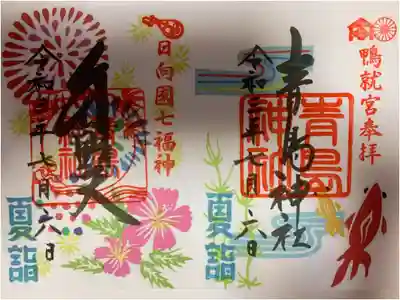 鴨就宮奉拝
青島神社
青島神社
令和三年七月六日
夏詣
日向國七福神
令和三年七月六日
夏詣